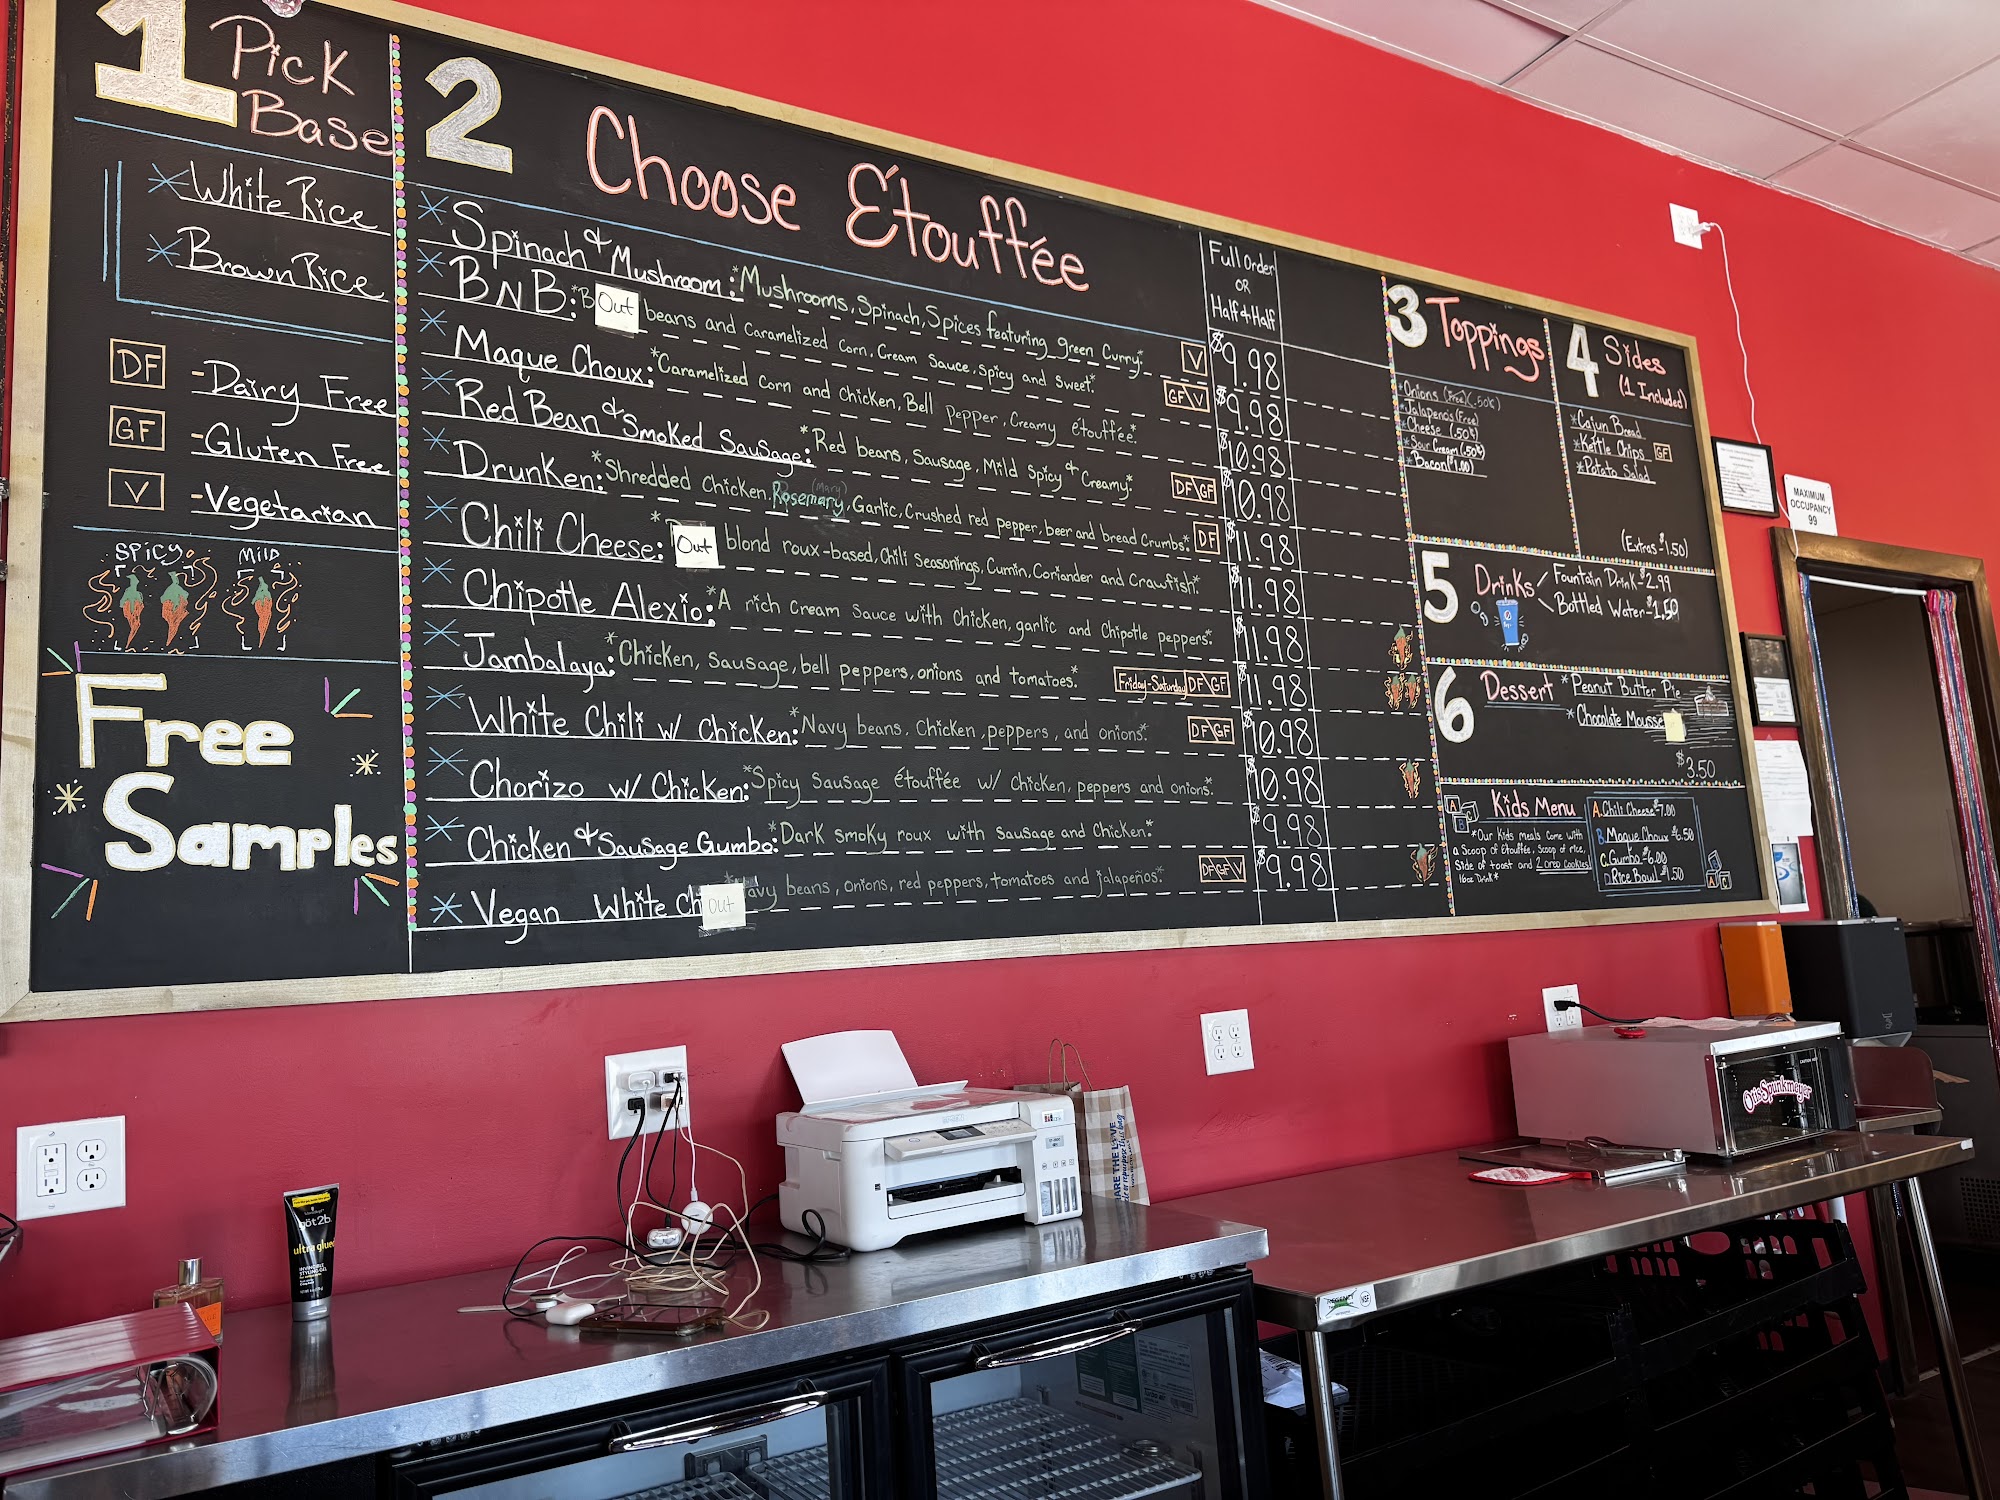 1 Pick
Base
* White Rice
* Brown Rice
DF - Dairy Free
GF - Gluten Free
V - Vegetarian
SPICY MILD
Free
Samples
2 Choose Étouffée
Full Order
OR
Half & Half
* Spinach & Mushroom: *Mushrooms, Spinach, Spices featuring green Curry.* V $9.98
* BNB: *B Out beans and Caramelized Corn, Cream Sauce, spicy and sweet.* GF V $9.98
* Maque Choux: *Caramelized Corn and Chicken, Bell pepper, Creamy étouffée.* $10.98
* Red Bean & Smoked Sausage: *Red beans, Sausage, Mild Spicy & Creamy.* DF\GF $10.98
* Drunken: *Shredded Chicken, Rosemary, (Mary) Garlic, Crushed red pepper, beer and bread Crumbs.* DF $11.98
* Chili Cheese: * Out blond roux-based, Chili Seasonings, Cumin, Coriander and Crawfish.* $11.98
* Chipotle Alexio: *A rich Cream Sauce with Chicken, garlic and Chipotle peppers.* $11.98
* Jambalaya: *Chicken, Sausage, bell peppers, onions and tomatoes.* Friday-Saturday DF\GF $11.98
* White Chili w/ Chicken: *Navy beans, Chicken, peppers, and onions.* DF\GF $10.98
* Chorizo w/ Chicken: *Spicy Sausage étouffée w/ Chicken, peppers and onions.* $10.98
* Chicken & Sausage Gumbo: *Dark smoky roux with sausage and Chicken.* $9.98
* Vegan White Ch Out avy beans, onions, red peppers, tomatoes and jalapeños.* DF GF V $9.98
3 Toppings
*Onions (Free) (.50¢)
*Jalapenos (Free)
*Cheese (.50¢)
*Sour Cream (.50¢)
*Bacon ($1.00)
4 Sides
(1 Included)
*Cajun Bread
*Kettle Chips GF
*Potato Salad
(Extras-$1.50)
5 Drinks
Fountain Drink-$2.99
Bottled Water-$1.50
6 Dessert *Peanut Butter Pie
*Chocolate Mousse
$3.50
Kids Menu
*Our Kids meals come with
a Scoop of étouffée, Scoop of rice,
Side of toast and 2 oreo Cookies
16oz Drink*
A. Chili Cheese-$7.00
B. Maque Choux-$6.50
C. Gumbo-$6.00
D. Rice Bowl-$1.50
MAXIMUM
OCCUPANCY
99
göt2b
ultra glued
INVINCIBLE
STYLING GEL
Otis Spunkmeyer
REGENCY
NSF